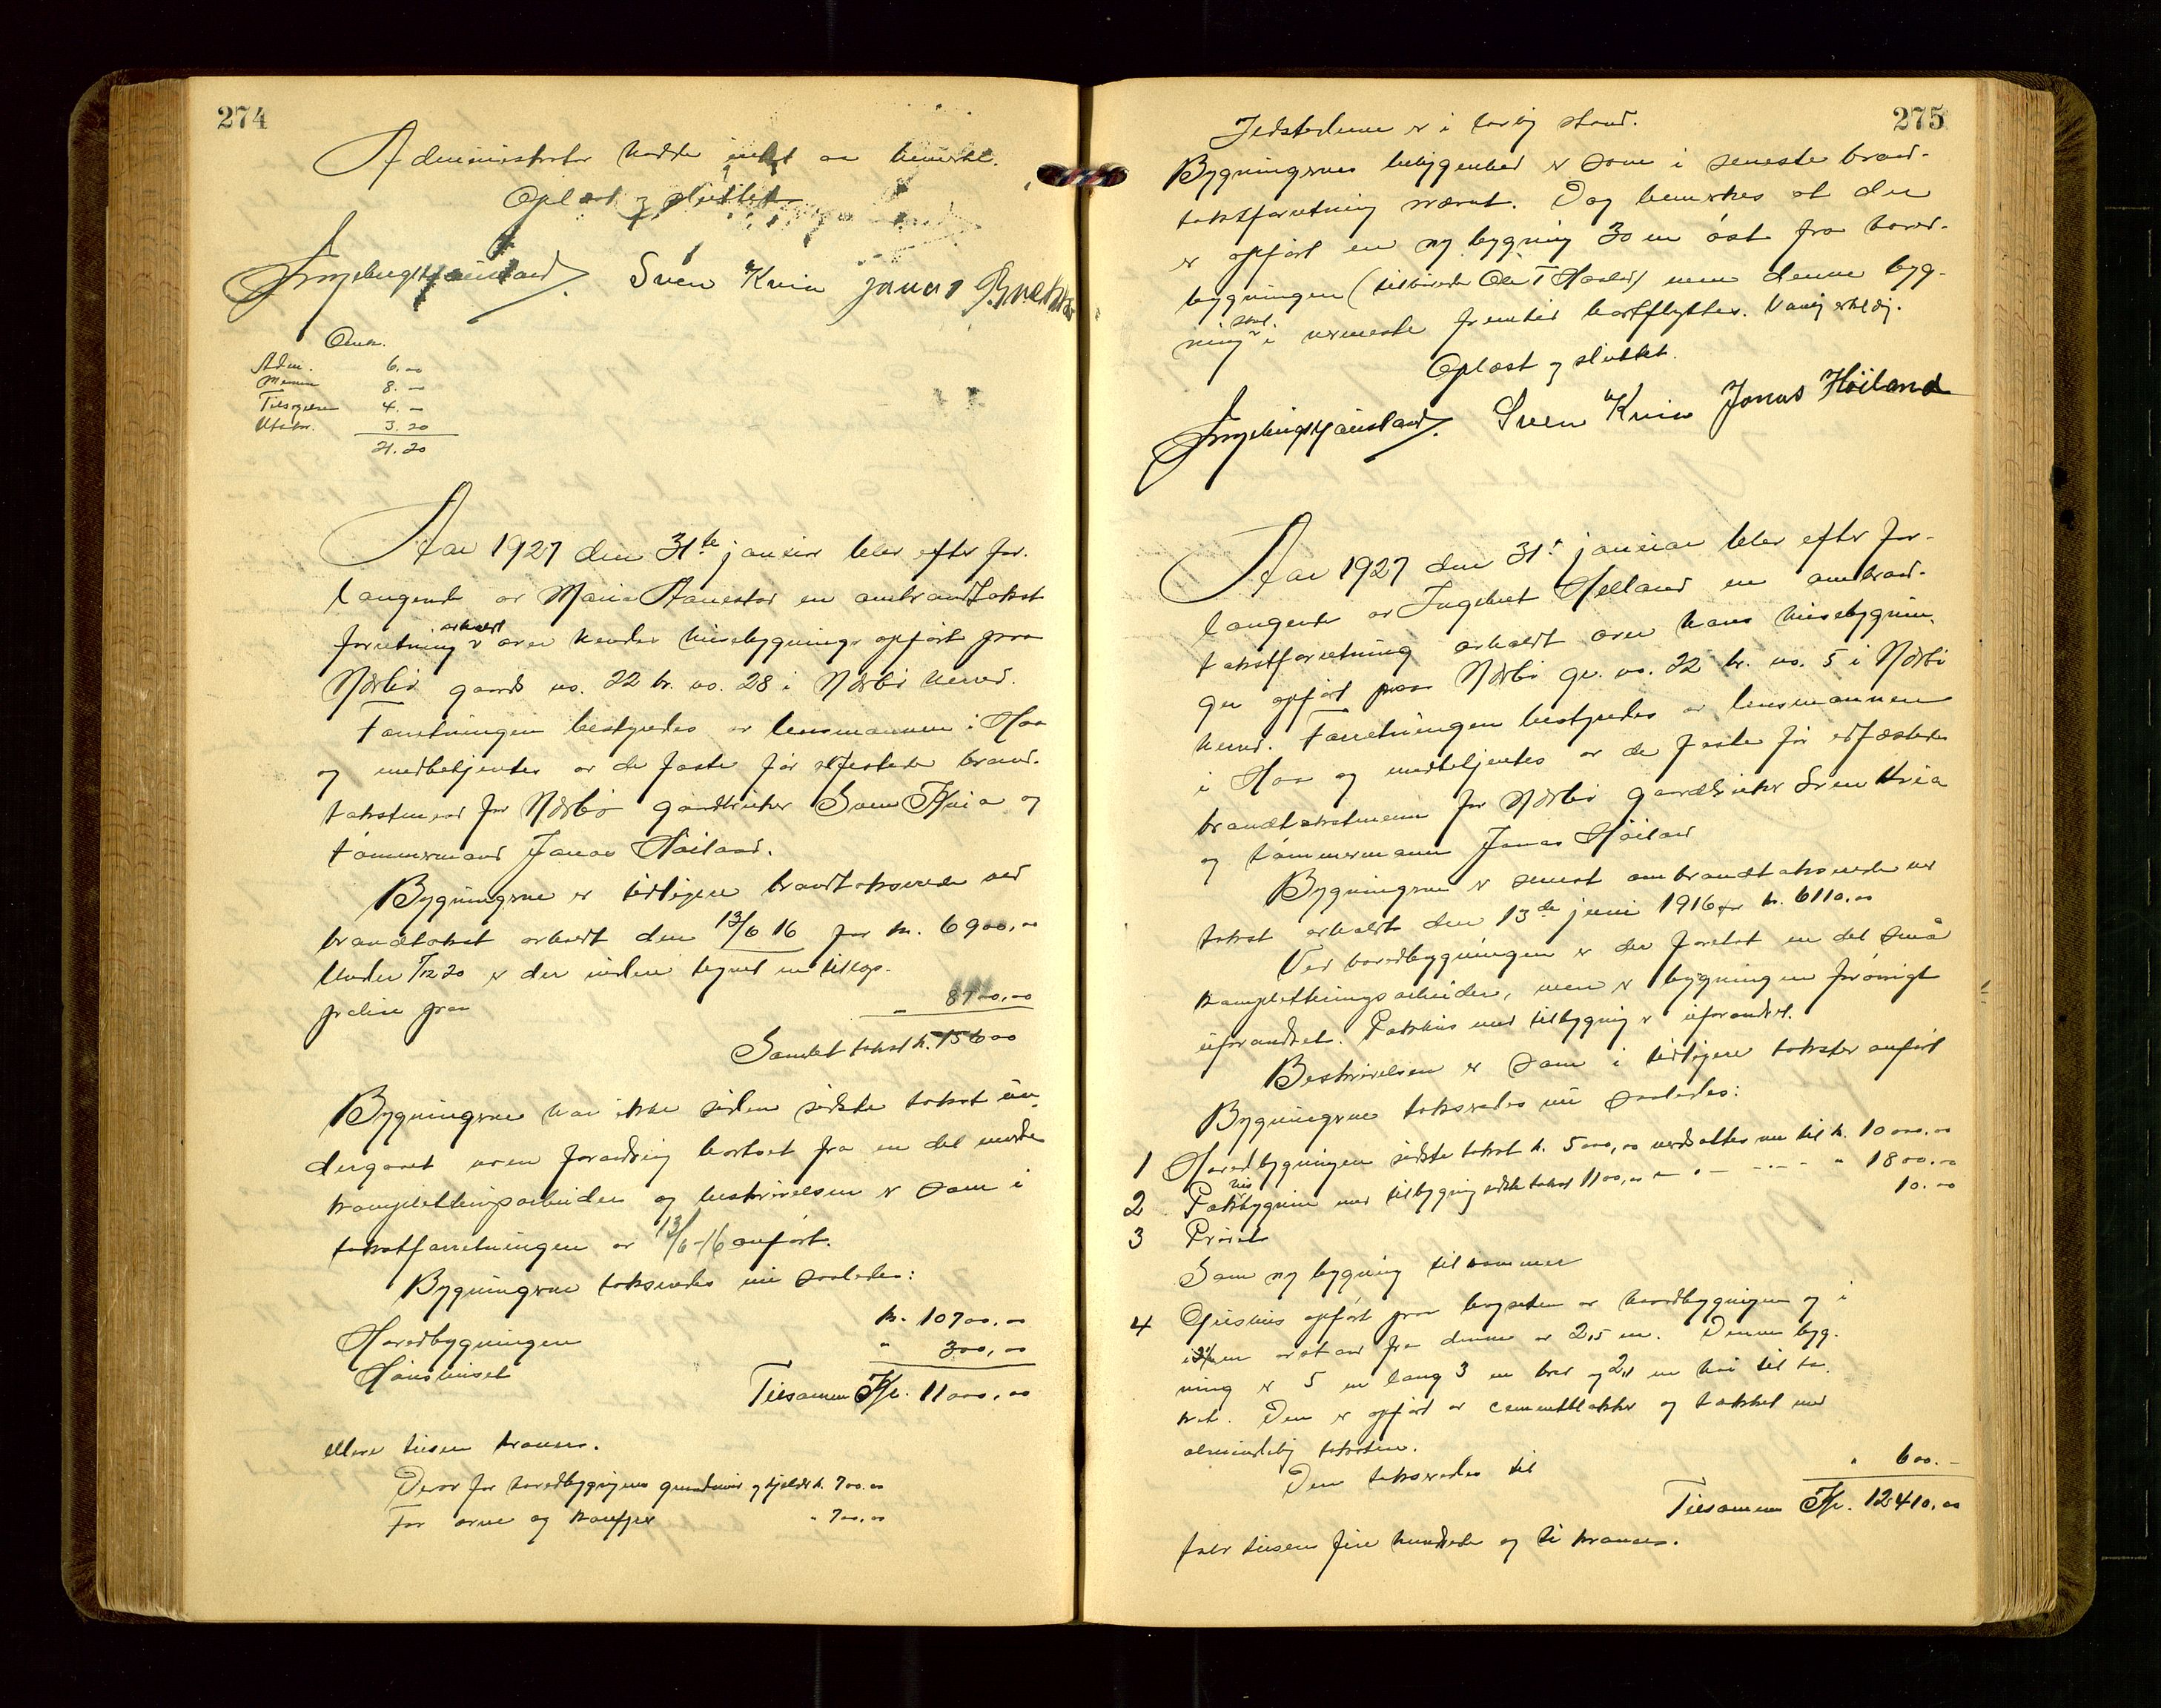 274
Administrator hadde intet at bemerke.
Oplæst og sluttet
Sven Kvia Jonas
Omk.
Adm. 6.00
Mænn 8.–
Tilsigelse 4.–
Utskr. 3.20
21.20
Aar 1927 den 31te januar blev efter for-
langende av Maria Aanestad en ombrandtakst
forretning avholdt over hendes husebygninger opført paa
Nærbø gaards no. 22 br. no. 28 i Nærbø herred.
Forretningen bestyredes av lensmannen i Haa
og medbetjentes av de faste før edfæstede brand-
takstmenn for Nærbø gaardbruker Sven Kvia og
tømmermand Jonas Høiland.
Bygningerne er tidligere brandtakserede ved
brandtakst avholdt den 13/6 16 for kr. 6900,00
Under 1/12 20 er der videre tegnet en tillægs-
police paa „ 8700,00
Samlet takst kr. 15600
Bygningerne har ikke siden sidste takst un-
dergaaet noen forandring bortset fra en del mindre
kompletteringsarbeider og beskrivelsen er som i
takstforretningen av 13/6-16 anført.
Bygningerne takseredes nu saaledes:
Hovedbygningen kr. 10700,00
Hønshuset „ 300,00
Tilsammen Kr. 11000,00
elleve tusen kroner.
Derav for hovedbygningens grundmur og kjelder kr. 700.00
For ovne og komfyr „ 700,00
275
Ildstederne er i lovlig stand.
Bygningernes beliggenhed er som i seneste brand-
takstforretning nævnt. Dog bemerkes at der
er opført en ny bygning 30 m øst fra hoved-
bygningen (tilhørende Ole T Haaland) men denne byg-
ning skal i nærmeste fremtid bortflyttes.
Oplæst og sluttet.
Sven Kvia Jonas Høiland
Aar 1927 den 31te januar blev efter for-
langende av Ingebret Helland en ombrand-
takstforretning avholdt over hans husebygnin-
ger opført paa Nærbø gr. no. 22 br. no. 5 i Nærbø
herred. Forretningen bestyredes av lensmannen
i Haa og medbetjentes av de faste før edfæstede
brandtakstmenn for Nærbø gaardbruker Sven Kvia
og tømmermann Jonas Høiland
Bygningerne er senest ombrandtakserede ved
takst avholdt den 13de juni 1916 for kr. 6110.00
Ved hovedbygningen er der foretat en del små
kompletteringsarbeider, men er bygningen forøvrigt
uforandret. Pakhus med tilbygning er uforandret.
Beskrivelsen er som i tidligere takster anført
Bygningerne takseredes nu saaledes:
1 Hovedbygningen sidste takst kr. 5000,00 verdsattes nu til kr. 10000.00
2 Pakhusbygning med tilbygning sidste takst 1100,00 – „ – – – – „ 1800.00
3 Privet 10.00
Som ny bygning tilkommer
4 Grishus opført paa baksiden av hovedbygningen og i
en avstand fra denne av 2,5 m. Denne byg-
ning er 5 m lang 3 m bred og 2,1 m høi til ta-
ket. Den er opført av cementblokker og takket med
almindelig taksten.
Den takseredes til „ 600.–
Tilsammen Kr. 12410,00
tolv tusen fire hundrede og ti kroner.